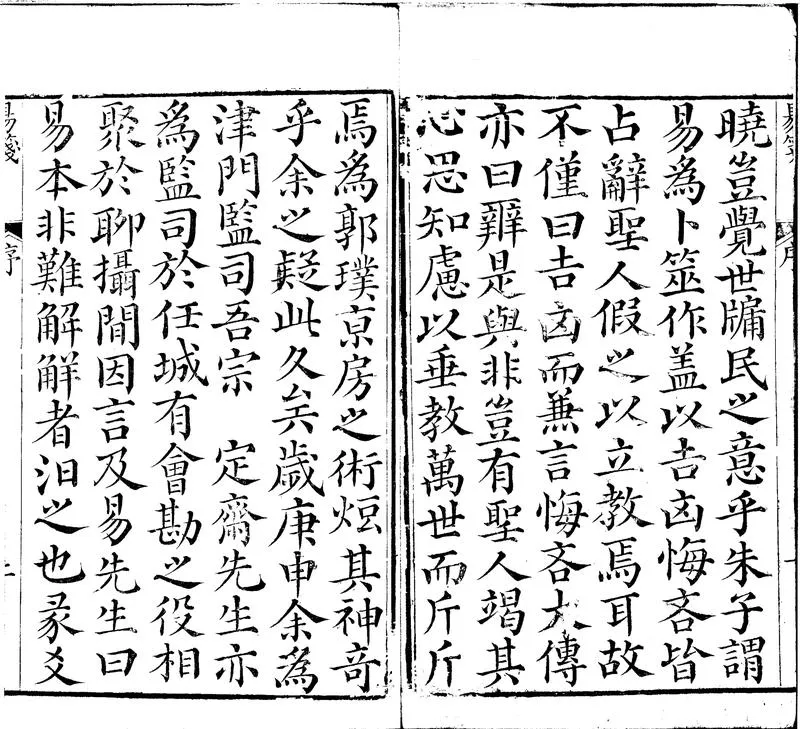 易箋
序
曉豈覺世牖民之意乎朱子謂
易為卜筮作盖以吉凶悔吝皆
占辭聖人假之以立教焉耳故
不僅曰吉凶而兼言悔吝大傳
亦曰辯是與非豈有聖人竭其
心思知慮以垂教萬世而斤斤
焉為郭璞京房之術烜其神奇
乎余之疑此久矣歲庚申余為
津門監司吾宗　定齋先生亦
為監司於任城有會勘之役相
聚於聊攝間因言及易先生曰
易本非難解解者汩之也彖爻
易箋
序